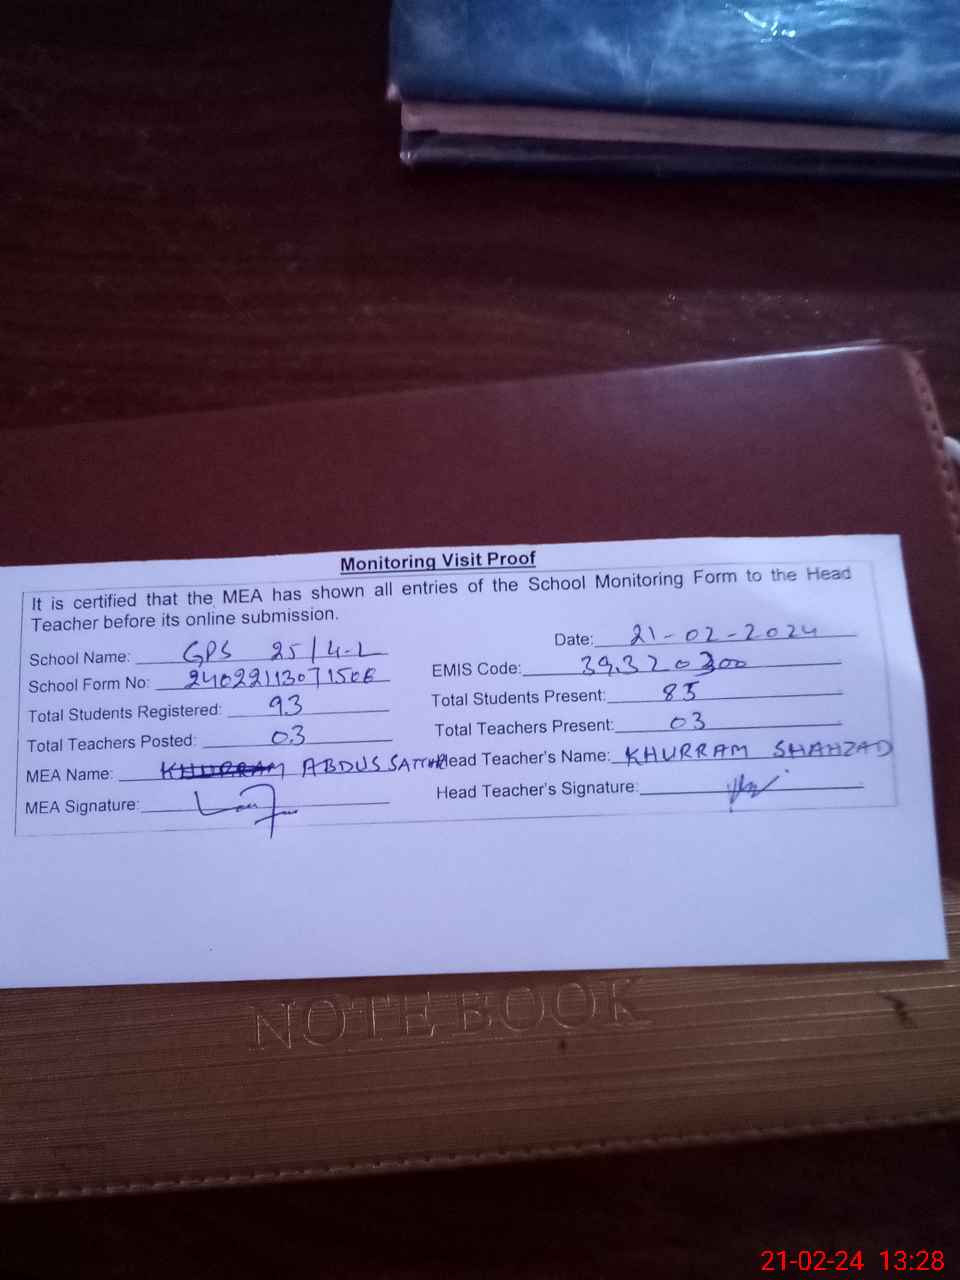 Monitoring Visit Proof
It is certified that the MEA has shown all entries of the School Monitoring Form to the Head
Teacher before its online submission.
Date: 21-02-2024
School Name: GPS 25/4-L
EMIS Code: 39320300
School Form No:
Total Students Registered: 93
Total Students Present: 85
Total Teachers Posted: 03
Total Teachers Present: 03
MEA Name: KHURRAM ABDUS SATTAR
Head Teacher's Name: KHURRAM SHAHZAD
MEA Signature:
Head Teacher's Signature:
NOTE BOOK
21-02-24 13:28